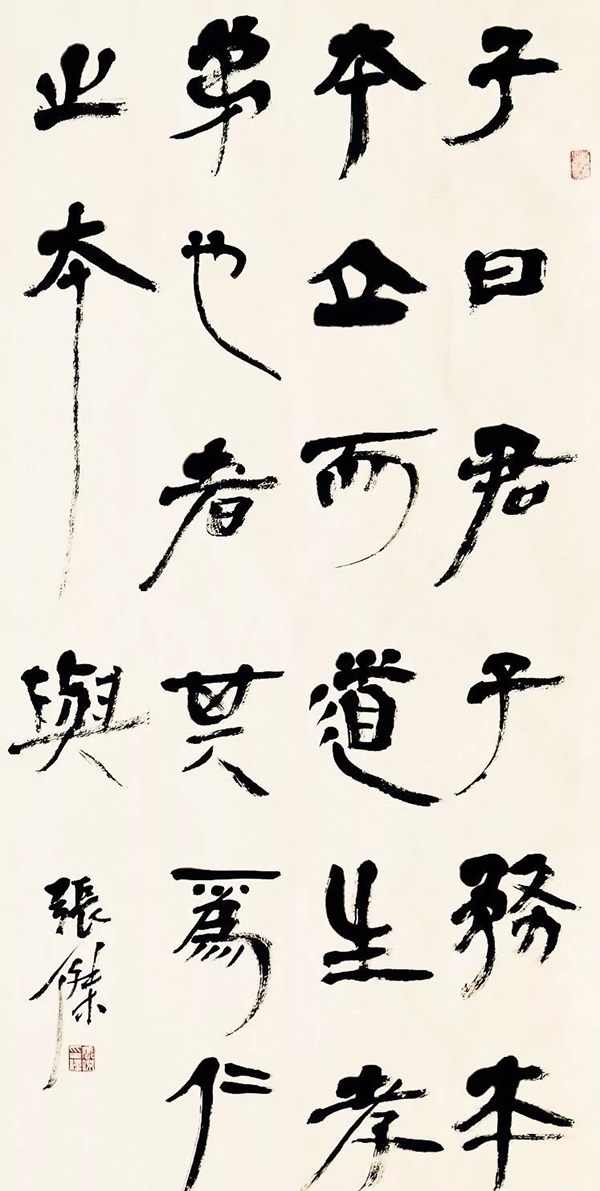 子曰君子務本
本立而道生孝
弟也者其為仁
之本與
張傑